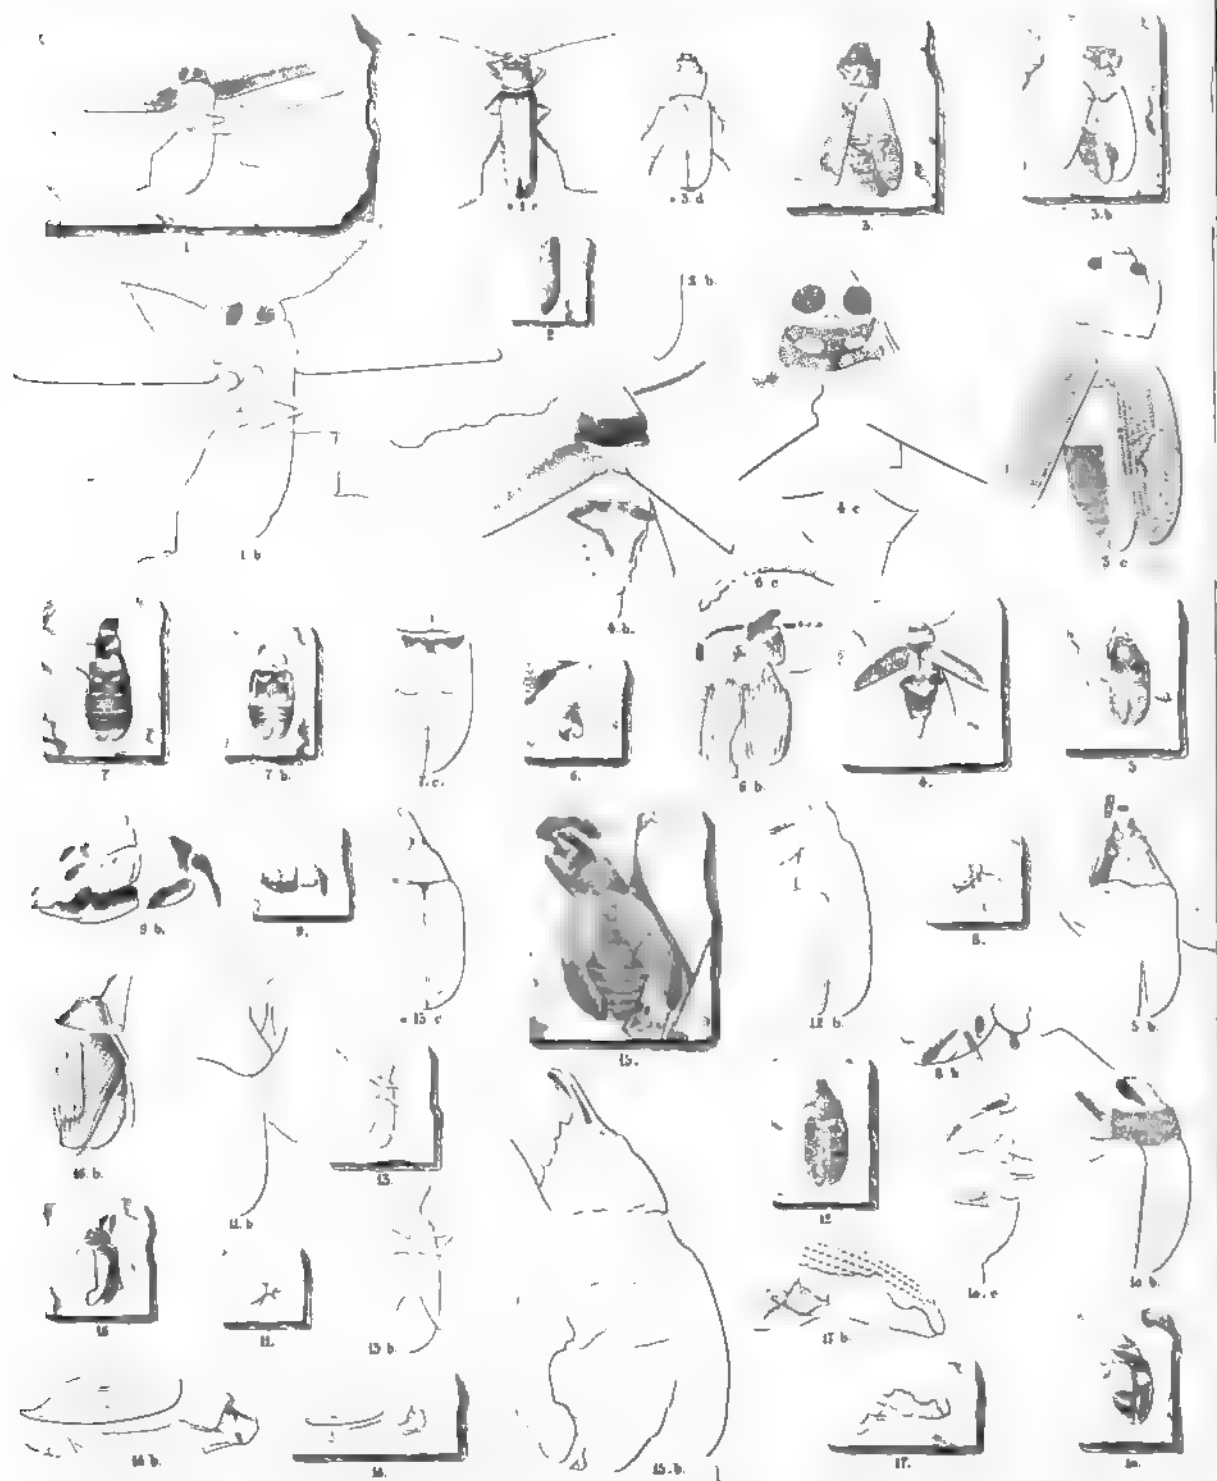 1
3.d
3.
3.b
2
2 b.
1 b
4 c
3 c
6 c
4.b.
7
7 b.
7.c.
6.
6 b.
4.
5
9 b.
9.
15 c
15.
12 b.
8.
5 b.
8 b
16.b.
13.
12
11.b
10.c
10 b.
16
11.
13 b.
17 b.
14 b.
14.
15.b.
17.
10.